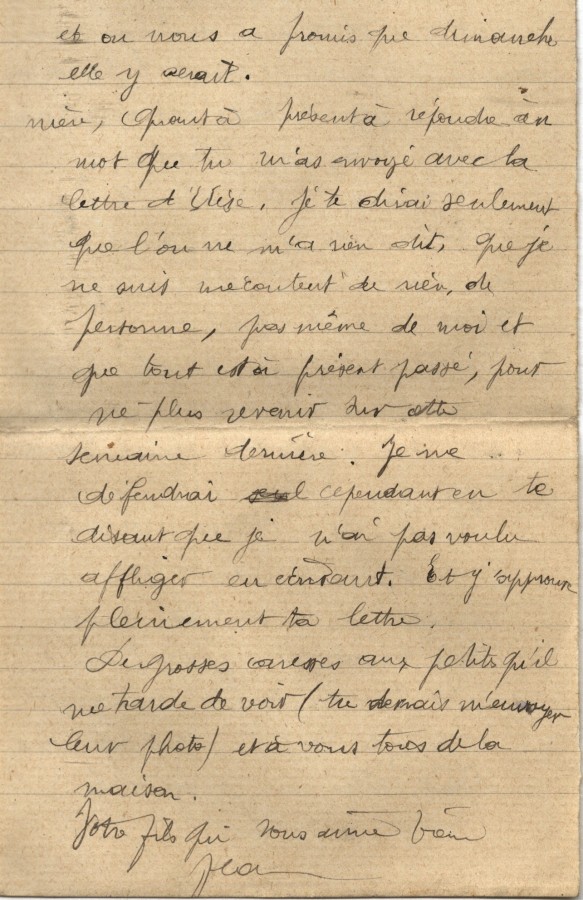 et on nous a promis que dimanche
elle y serait.
mère, Quant à présent à répondre à un
mot que tu m'as envoyé avec la
lettre d'Elise, je te dirai seulement
que l'on ne m'a rien dit, que je
ne suis mécontent de rien, de
personne, pas même de moi et
que tout est à présent passé, pour
ne plus revenir sur cette
semaine dernière. Je me
défendrai cependant en te
disant que je n'ai pas voulu
affliger en écrivant. Et j'approuve
pleinement ta lettre.
De grosses caresses aux petits qu'il
me tarde de voir (tu devrais m'envoyer
leur photo) et à vous tous de la
maison.
Votre fils qui vous aime bien
Jean